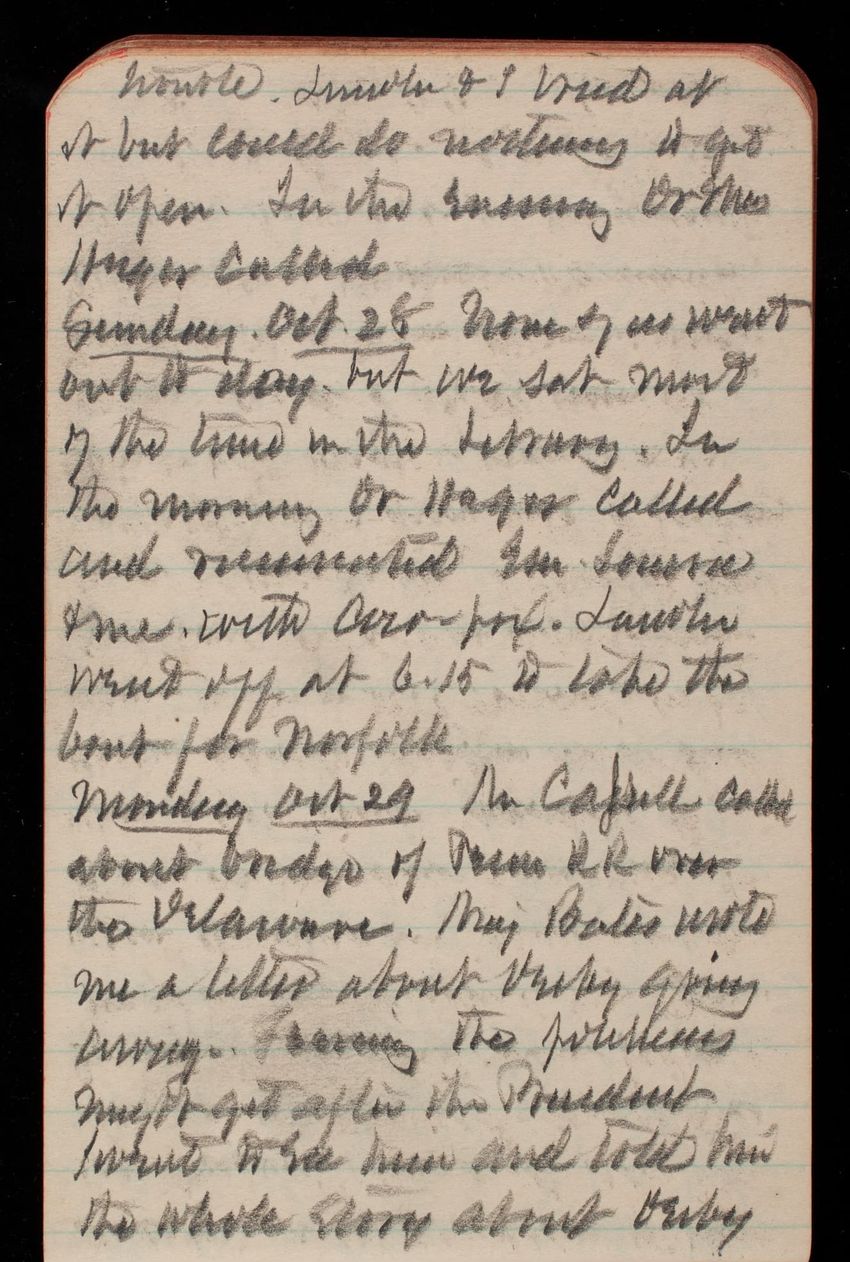 trouble. Lincoln & I tried at
it but could do nothing to get
it open. In the evening Dr & Mrs
Hager Called
Sunday. Oct. 28 None of us went
out to day. but we sat most
of the time in the Library. In
the morning Dr Hager Called
and vaccinated Em. Louise
& me. with Cow-pox. Lincoln
went off at 6.15 to take the
boat for Norfolk
Monday Oct 29 Mr Cassell called
about bridge of Penn RR over
the Delaware. Maj Bates wrote
me a letter about Derby going
away. Fearing the politicians
might get after the President
I went to see him and told him
the whole story about Derby